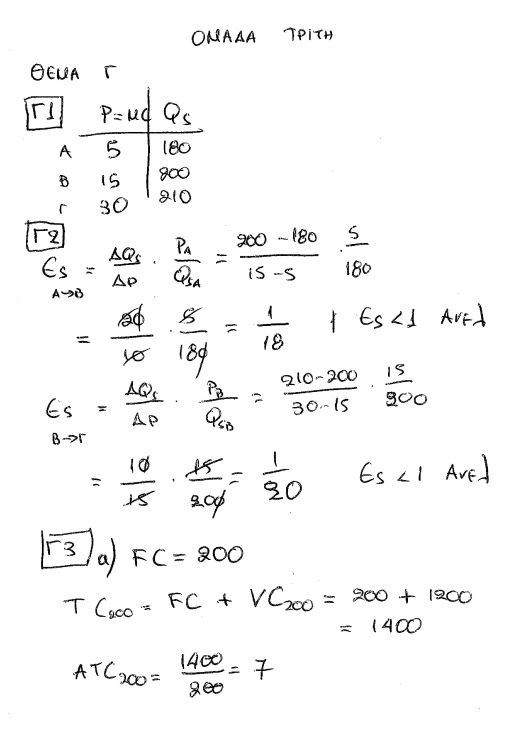 ΟΜΑΔΑ ΤΡΙΤΗ
ΘΕΜΑ Γ
Γ1 P=MC Qs
A 5 180
B 15 200
Γ 30 210
Γ2
Es A→B = ΔQs/ΔP · PA/QSA = 200-180/15-5 · 5/180
= 20/10 · 5/180 = 1/18 Es<1 Ανελ
Es B→Γ = ΔQs/ΔP · PB/QSB = 210-200/30-15 · 15/200
= 10/15 · 15/200 = 1/20 Es<1 Ανελ
Γ3 a) FC = 200
TC200 = FC + VC200 = 200 + 1200
= 1400
ATC200 = 1400/200 = 7